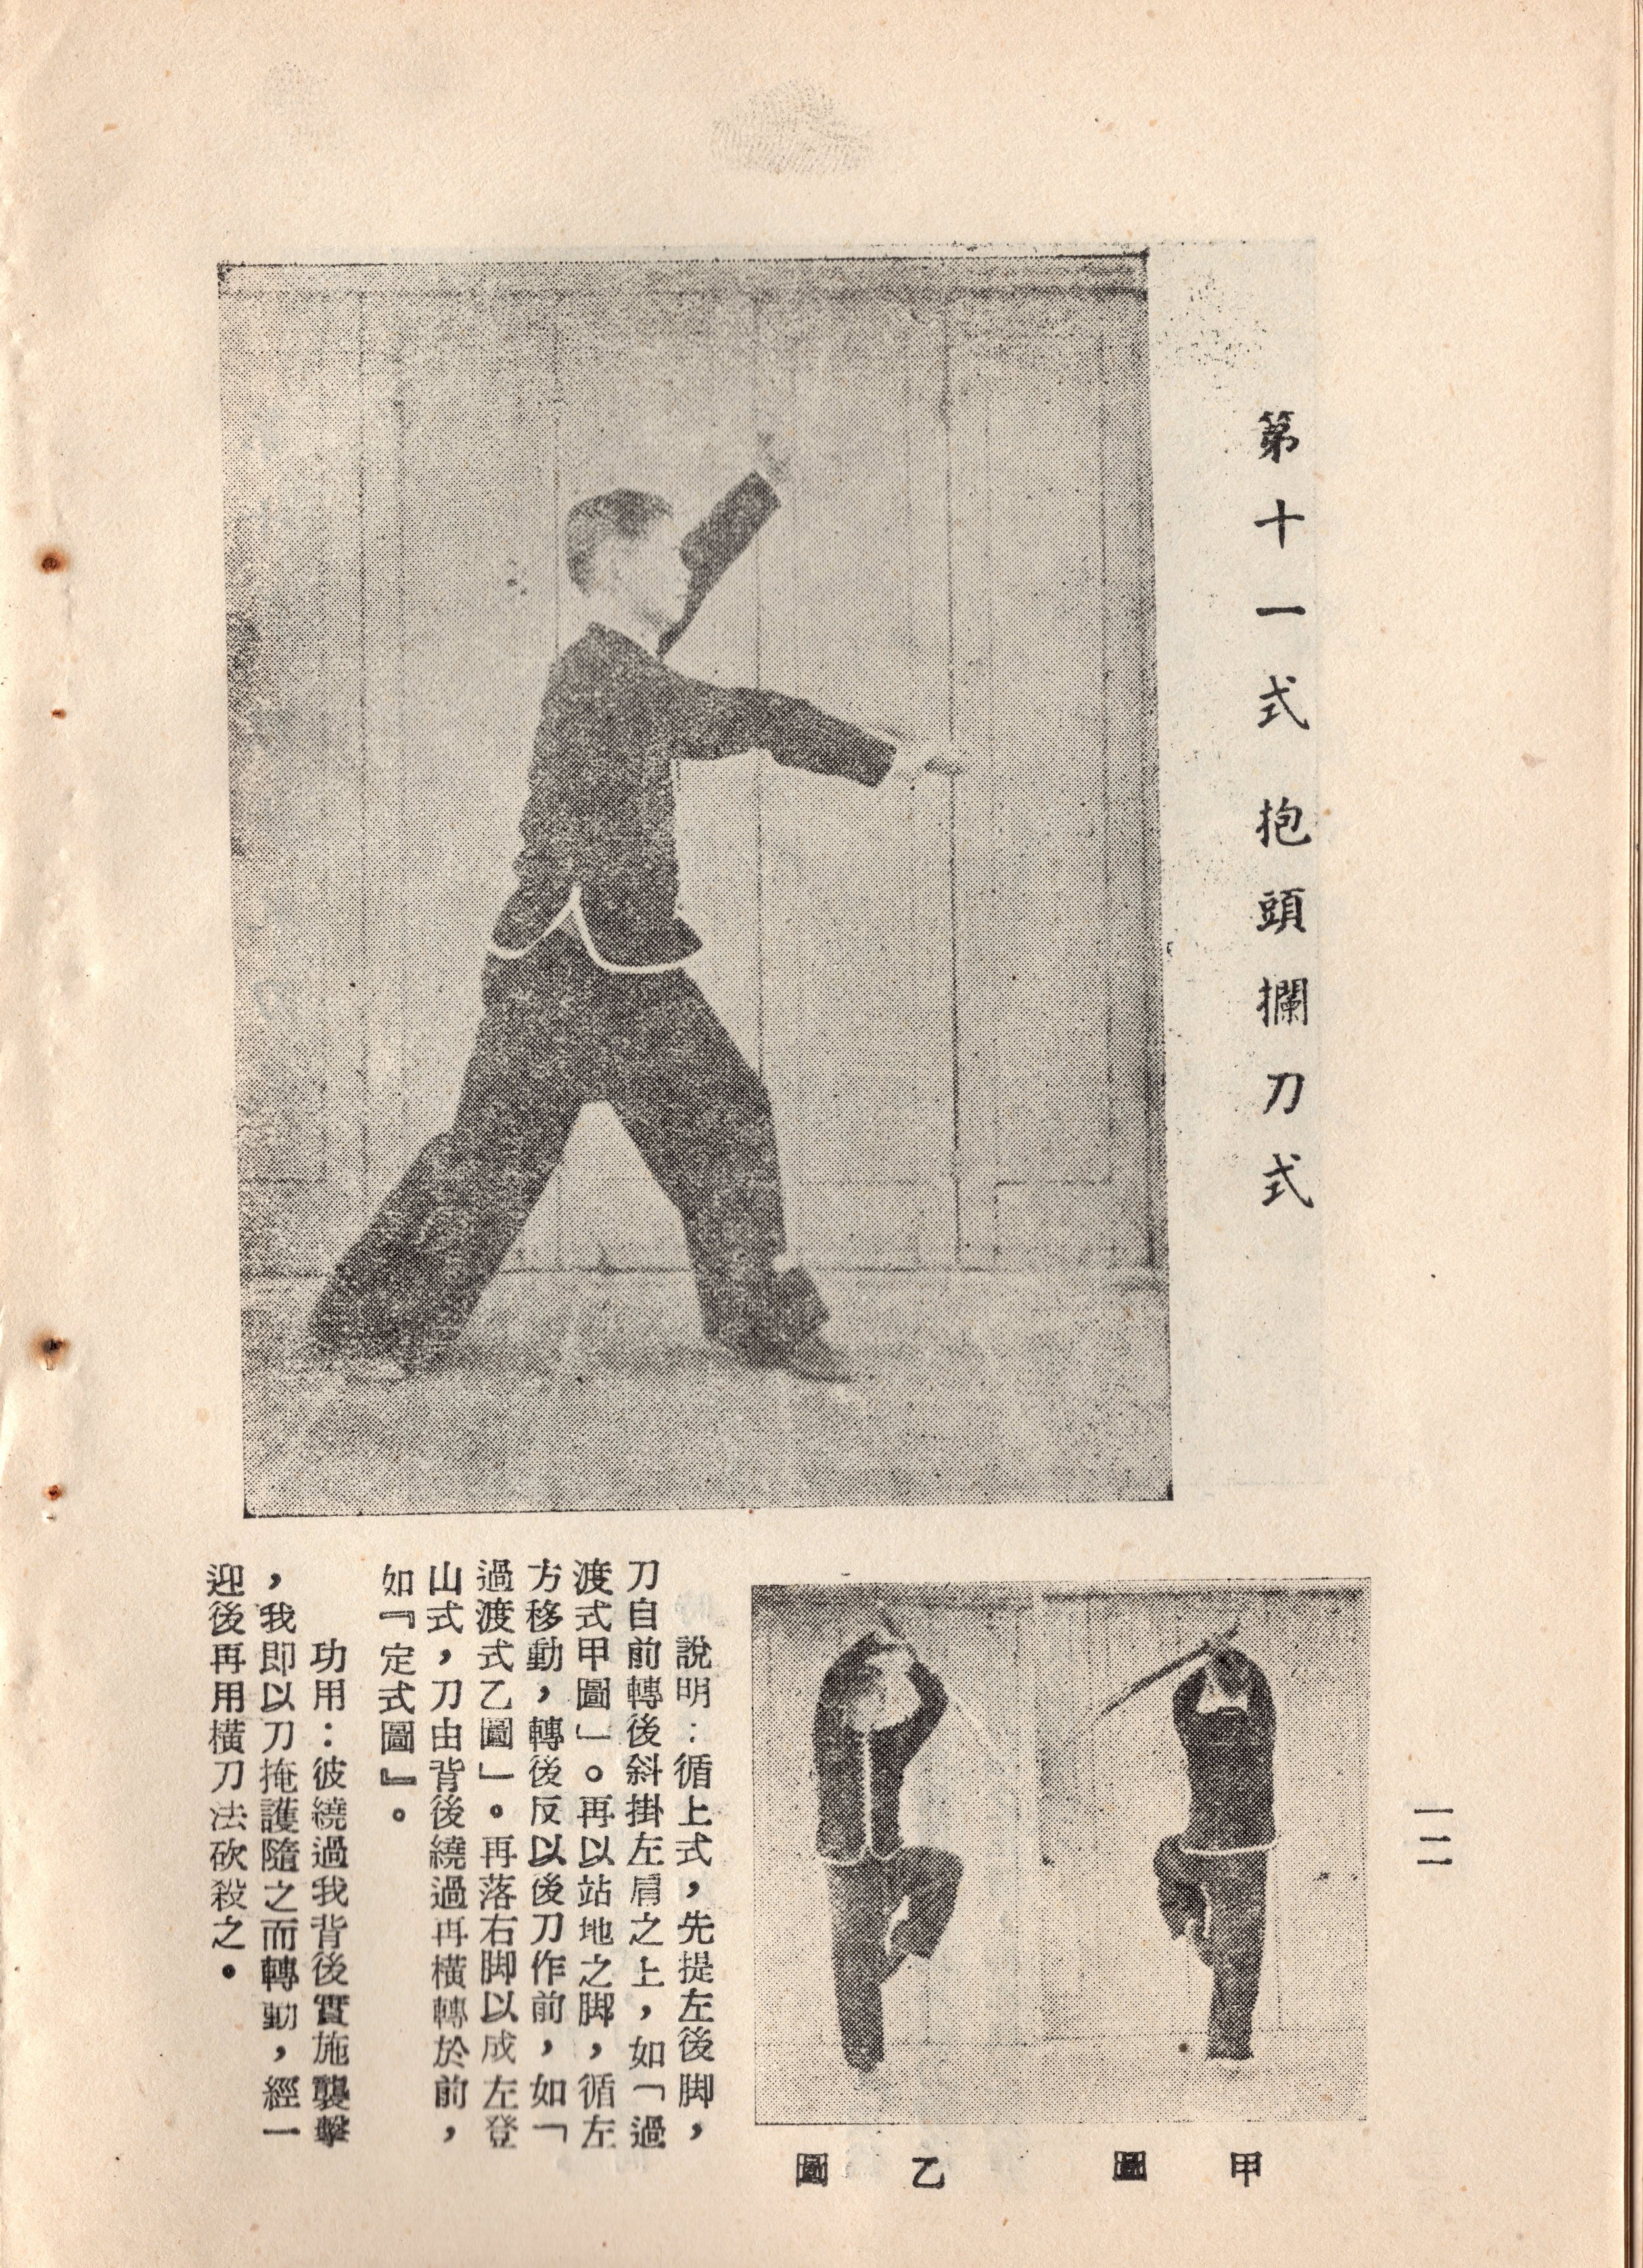 第十一式 抱頭攔刀式
一二
甲圖
乙圖
說明：循上式，先提左後脚，
刀自前轉後斜掛左肩之上，如「過
渡式甲圖」。再以站地之脚，循左
方移動，轉後反以後刀作前，如「
過渡式乙圖」。再落右脚以成左登
山式，刀由背後繞過再橫轉於前，
如『定式圖』。
功用：彼繞過我背後實施襲擊
，我即以刀掩護隨之而轉動，經一
迎後再用橫刀法砍殺之。